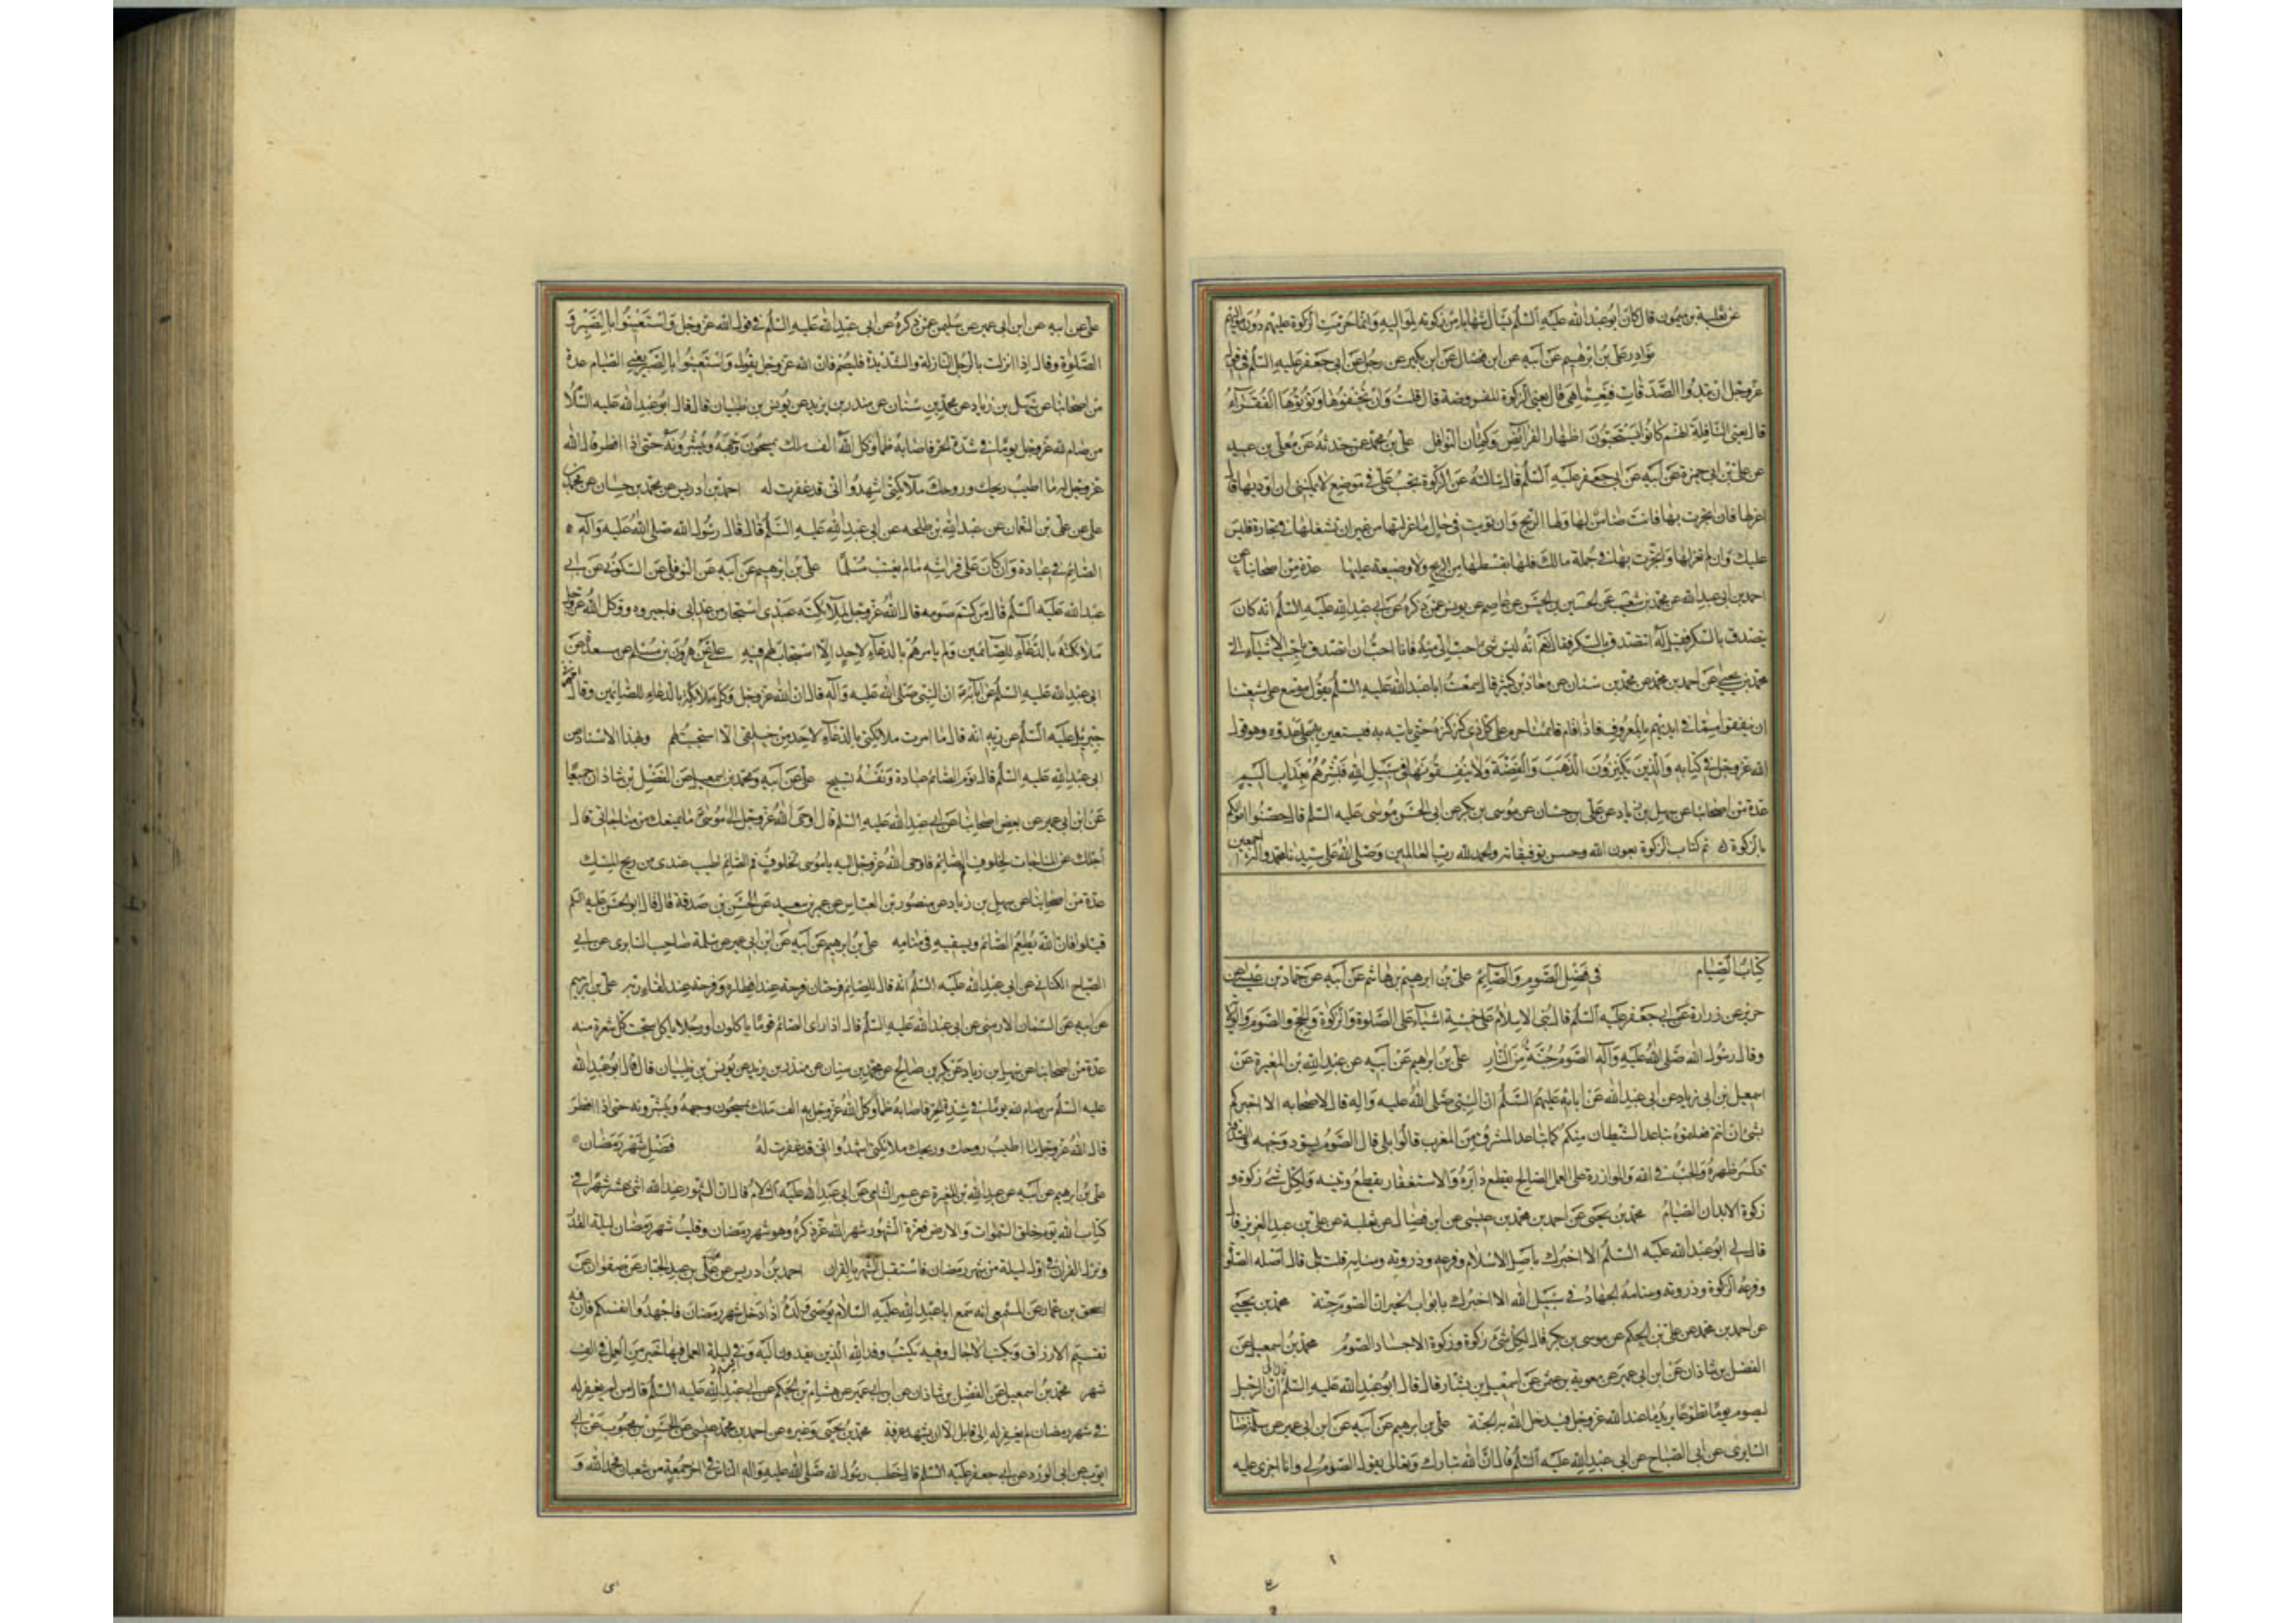 عن ثعلبة بن ميمون قال كان ابو عبد الله عليه السلم يسأل شهابا من زكوته لمواليه وانما حرمت الزكوة عليهم دون مواليهم
نوادر على بن ابرهيم عن ابيه عن ابن فضال عن ابن بكير عن رجل عن ابى جعفر عليه السلم فى قوله
عز وجل ان تبدوا الصدقات فنعما هى قال يعنى الزكوة المفروضة قال قلت وان تخفوها وتؤتوها الفقرآء
قال يعنى النافلة انهم كانوا يستحبون اظهار الفرائض وكتمان النوافل على بن محمد عن حدثه عن معلى بن عبيد
عن على بن ابى حمزة عن ابيه عن ابى جعفر عليه السلم قال سالته عن الزكوة تجب على فى موضع لا يمكننى ان اوديها قال
اعزلها فان اتجرت بها فانت ضامن لها ولها الربح وان تويت فى حال ما عزلتها من غير ان تشغلها فى تجارة فليس
عليك وان لم تعزلها واتجرت بها فى جملة مالك فلها بقسطها من الربح ولا وضيعة عليها عدة من اصحابنا عن
احمد بن ابى عبد الله عن محمد بن شعيب عن الحسين بن الحسن عن عاصم عن يونس عمن ذكره عن ابى عبد الله عليه السلم انه كان
يتصدق بالسكر فقيل له اتتصدق بالسكر فقال نعم انه ليس شئ احب الى منه فانا احب ان اتصدق باحب الاشيآء الى
محمد بن يحيى عن احمد بن محمد عن محمد بن سنان عن معاذ بن كثير قال سمعت ابا عبد الله عليه السلم يقول موسع على شيعتنا
ان ينفقوا مما فى ايديهم بالمعروف فاذا قام قائمنا حرم على كل ذى كنز كنزه حتى ياتيه به فيستعين به على عدوه وهو قول
الله عز وجل فى كتابه والذين يكنزون الذهب والفضة ولا ينفقونها فى سبيل الله فبشرهم بعذاب اليم
عدة من اصحابنا عن سهل بن زياد عن على بن حسان عن موسى بن بكر عن ابى الحسن موسى عليه السلم قال حصنوا اموالكم
بالزكوة تم كتاب الزكوة بعون الله وحسن توفيقاته والحمد لله رب العالمين وصلى الله على سيدنا محمد واله اجمعين
كتاب الصيام فى فضل الصوم والصآئم على بن ابرهيم بن هاشم عن ابيه عن حماد بن عيسى عن
حريز عن زرارة عن ابى جعفر عليه السلم قال بنى الاسلام على خمسة اشيآء على الصلوة والزكوة والحج والصوم والولاية
وقال رسول الله صلى الله عليه وآله الصوم جنة من النار على بن ابرهيم عن ابيه عن عبد الله بن المغيرة عن
اسمعيل بن ابى زياد عن ابى عبد الله عن ابائه عليهم السلم ان النبى صلى الله عليه واله قال لاصحابه الا اخبركم
بشئ ان انتم فعلتموه تباعد الشيطان منكم كما تباعد المشرق من المغرب قالوا بلى قال الصوم يسود وجهه والصدقة
تكسر ظهره والحب فى الله والموازرة على العمل الصالح يقطع دابره والاستغفار يقطع وتينه ولكل شئ زكوة و
زكوة الابدان الصيام محمد بن يحيى عن احمد بن محمد بن عيسى عن ابن فضال عن ثعلبة عن على بن عبد العزيز قال
قال لى ابو عبد الله عليه السلم الا اخبرك باصل الاسلام وفرعه وذروته وسنامه قلت بلى قال اصله الصلوة
وفرعه الزكوة وذروته وسنامه الجهاد فى سبيل الله الا اخبرك بابواب الخير ان الصوم جنة محمد بن يحيى
عن احمد بن محمد عن على بن الحكم عن موسى بن بكر قال لكل شئ زكوة وزكوة الاجساد الصوم محمد بن اسمعيل عن
الفضل بن شاذان عن ابن ابى عمير عن معوية بن عثمن عن اسمعيل بن بشار قال قال ابو عبد الله عليه السلم ان الرجل
ليصوم يوما تطوعا يريد ما عند الله عز وجل فيدخله الله به الجنة على بن ابرهيم عن ابيه عن ابن ابى عمير عن سلمة صاحب
السابرى عن ابى الصباح عن ابى عبد الله عليه السلم قال ان الله تبارك وتعالى يقول الصوم لى وانا اجزى عليه
على عن ابيه عن ابن ابى عمير عن سليمن عمن ذكره عن ابى عبد الله عليه السلم فى قول الله عز وجل واستعينوا بالصبر و
الصلوة وقال اذا نزلت بالرجل النازلة والشديدة فليصم فان الله عز وجل يقول واستعينوا بالصبر يعنى الصيام عدة
من اصحابنا عن سهل بن زياد عن محمد بن سنان عن منذر بن يزيد عن يونس بن ظبيان قال قال ابو عبد الله عليه السلم
من صام لله عز وجل يوما فى شدة الحر فاصابه ظمأ وكل الله به الف ملك يمسحون وجهه ويبشرونه حتى اذا افطر قال الله
عز وجل له ما اطيب ريحك وروحك ملآئكتى اشهدوا انى قد غفرت له احمد بن ادريس عن محمد بن حسان عن محمد بن
على عن على بن النعمان عن عبد الله بن طلحه عن ابى عبد الله عليه السلم قال قال رسول الله صلى الله عليه وآله
الصائم فى عبادة وان كان على فراشه ما لم يغتب مسلما على بن ابرهيم عن ابيه عن النوفلى عن السكونى عن ابى
عبد الله عليه السلم قال من كتم صومه قال الله عز وجل لملآئكته عبدى استجار من عذابى فاجيروه ووكل الله عز وجل
ملائكته بالدعآء للصآئمين ولم يامرهم بالدعآء لاحد الا استجاب لهم فيه على عن هرون بن مسلم عن مسعدة عن
ابى عبد الله عليه السلم عن ابآئه ان النبى صلى الله عليه وآله قال ان الله عز وجل وكل ملائكة بالدعاء للصائمين وقال اخبرنى
جبرئيل عليه السلم عن ربه انه قال ما امرت ملائكتى بالدعآء لاحد من خلقى الا استجبت لهم وبهذا الاسناد عن
ابى عبد الله عليه السلم قال نوم الصائم عبادة ونفسه تسبيح على عن ابيه ومحمد بن اسمعيل عن الفضل بن شاذان جميعا
عن ابن ابى عمير عن بعض اصحابنا عن ابى عبد الله عليه السلم قال اوحى الله عز وجل الى موسى ما يمنعك من مناجاتى قال
اجلك عن المناجات لخلوف فم الصائم فاوحى الله عز وجل اليه يا موسى لخلوف فم الصائم اطيب عندى من ريح المسك
عدة من اصحابنا عن سهل بن زياد عن منصور بن العباس عن عمر بن سعيد عن الحسن بن صدقة قال قال ابو الحسن عليه السلم
قيلوا فان الله يطعم الصائم ويسقيه فى منامه على بن ابرهيم عن ابيه عن ابن ابى عمير عن سلمة صاحب السابرى عن ابى
الصباح الكنانى عن ابى عبد الله عليه السلم انه قال للصائم فرحتان فرحة عند افطاره وفرحة عند لقاء ربه على بن ابرهيم
عن ابيه عن السمان الارمنى عن ابى عبد الله عليه السلم قال اذا راى الصائم قوما ياكلون او رجلا ياكل سبحت كل شعرة منه
عدة من اصحابنا عن سهل بن زياد عن بكر بن صالح عن محمد بن سنان عن منذر بن يزيد عن يونس بن ظبيان قال قال ابو عبد الله
عليه السلم من صام لله يوما فى شدة الحر فاصابه ظمأ وكل الله عز وجل به الف ملك يمسحون وجهه ويبشرونه حتى اذا افطر
قال الله عز وجل ما اطيب روحك وريحك ملائكتى اشهدوا انى قد غفرت له فضل شهر رمضان
على بن ابرهيم عن ابيه عن عبد الله بن المغيرة عن عمر الشامى عن ابى عبد الله عليه السلام قال ان الشهور عند الله اثنى عشر شهرا فى
كتاب الله يوم خلق السموات والارض فغرة الشهور شهر الله عز ذكره وهو شهر رمضان وقلب شهر رمضان ليلة القدر
ونزل القران فى اول ليلة من شهر رمضان فاستقبل الشهر بالقران احمد بن ادريس عن محمد بن عبد الجبار عن صفوان عن
اسحق بن عمار عن المسمعى انه سمع ابا عبد الله عليه السلام يوصى ولده اذا دخل شهر رمضان فاجهدوا انفسكم فان فيه
تقسيم الارزاق وتكتب الآجال وفيه يكتب وفد الله الذين يفدون اليه وفيه ليلة العمل فيها خير من العمل فى الف
شهر محمد بن اسمعيل عن الفضل بن شاذان عن ابن ابى عمير عن هشام بن الحكم عن ابى عبد الله عليه السلم قال من لم يغفر له
فى شهر رمضان لم يغفر له الى قابل الا ان يشهد عرفة محمد بن يحيى وغيره عن احمد بن محمد بن عيسى عن الحسن بن محبوب عن ابى
ايوب عن ابى الورد عن ابى جعفر عليه السلم قال خطب رسول الله صلى الله عليه واله الناس فى اخر جمعة من شعبان فحمد الله و